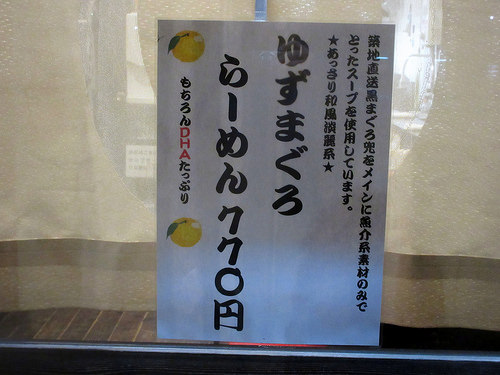 築地直送黒まぐろ兜をメインに魚介系素材のみで
とったスープを使用しています。
★あっさり和風淡麗系★
ゆずまぐろ
らーめん７７〇円
もちろんDHAたっぷり